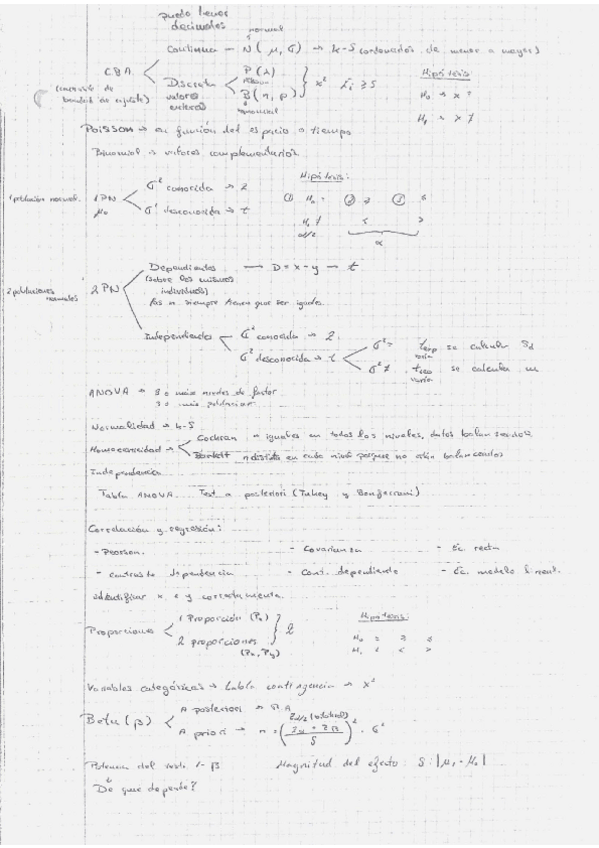 puedo tener
decimales
Continua – N(μ, σ) → K-S (ordenados de menor a mayor)
normal
CBA
(contraste de bondad de ajuste)
Discreta
valores
enteros
P(λ)
B(n, p)
binomial
} x² Ei ≥ 5
Hipótesis:
H₀ → x =
H₁ → x ≠
Poisson → en función del espacio o tiempo
Binomial → valores complementarios
1 población normal.
1 PN
μ₀
σ² conocida → z
σ² desconocida → t
Hipótesis:
① H₀ =
H₁ ≠
α/2
α
2 poblaciones normales
2 PN
Dependientes → D = x - y → t
(sobre los mismos
individuos)
las n siempre tienen que ser iguales.
Independientes
σ² conocida → z.
σ² desconocida → t
σ² = t se calcula Sd
σ² ≠ t se calcula
ANOVA → 3 o más niveles de factor
3 o más poblaciones
Normalidad → K-S
Homocedasticidad →
Cochran n iguales en todos los niveles, datos balanceados
Bartlett n distinta en cada nivel porque no están balanceados
Independencia
Tabla ANOVA. Test a posteriori (Tukey y Bonferroni)
Correlación y regresión:
- Pearson. - Covarianza - Ec. recta
- contraste dependencia - Cont. dependiente - Ec. modelo lineal.
identificar x e y correctamente.
Proporciones
1 Proporción (Px)
2 proporciones
(Px, Py)
} z
Hipótesis:
H₀ = ≥ ≤
H₁ ≠ < >
Variables categóricas → tabla contingencia → x²
Beta (β)
A posteriori →
A priori → n = ( (Zα + Zβ) / δ )² · σ²
Zα/2 (bilateral)
Potencia del test 1 - β Magnitud del efecto: δ: |μ₁ - μ₀|
De que depende?